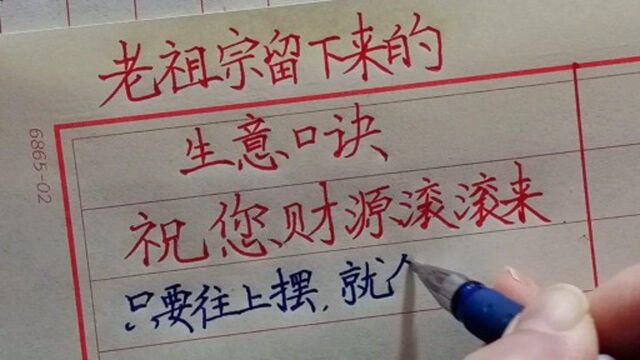 老祖宗留下来的
生意口诀
祝您财源滚滚来
只要往上摆,就
6865-02